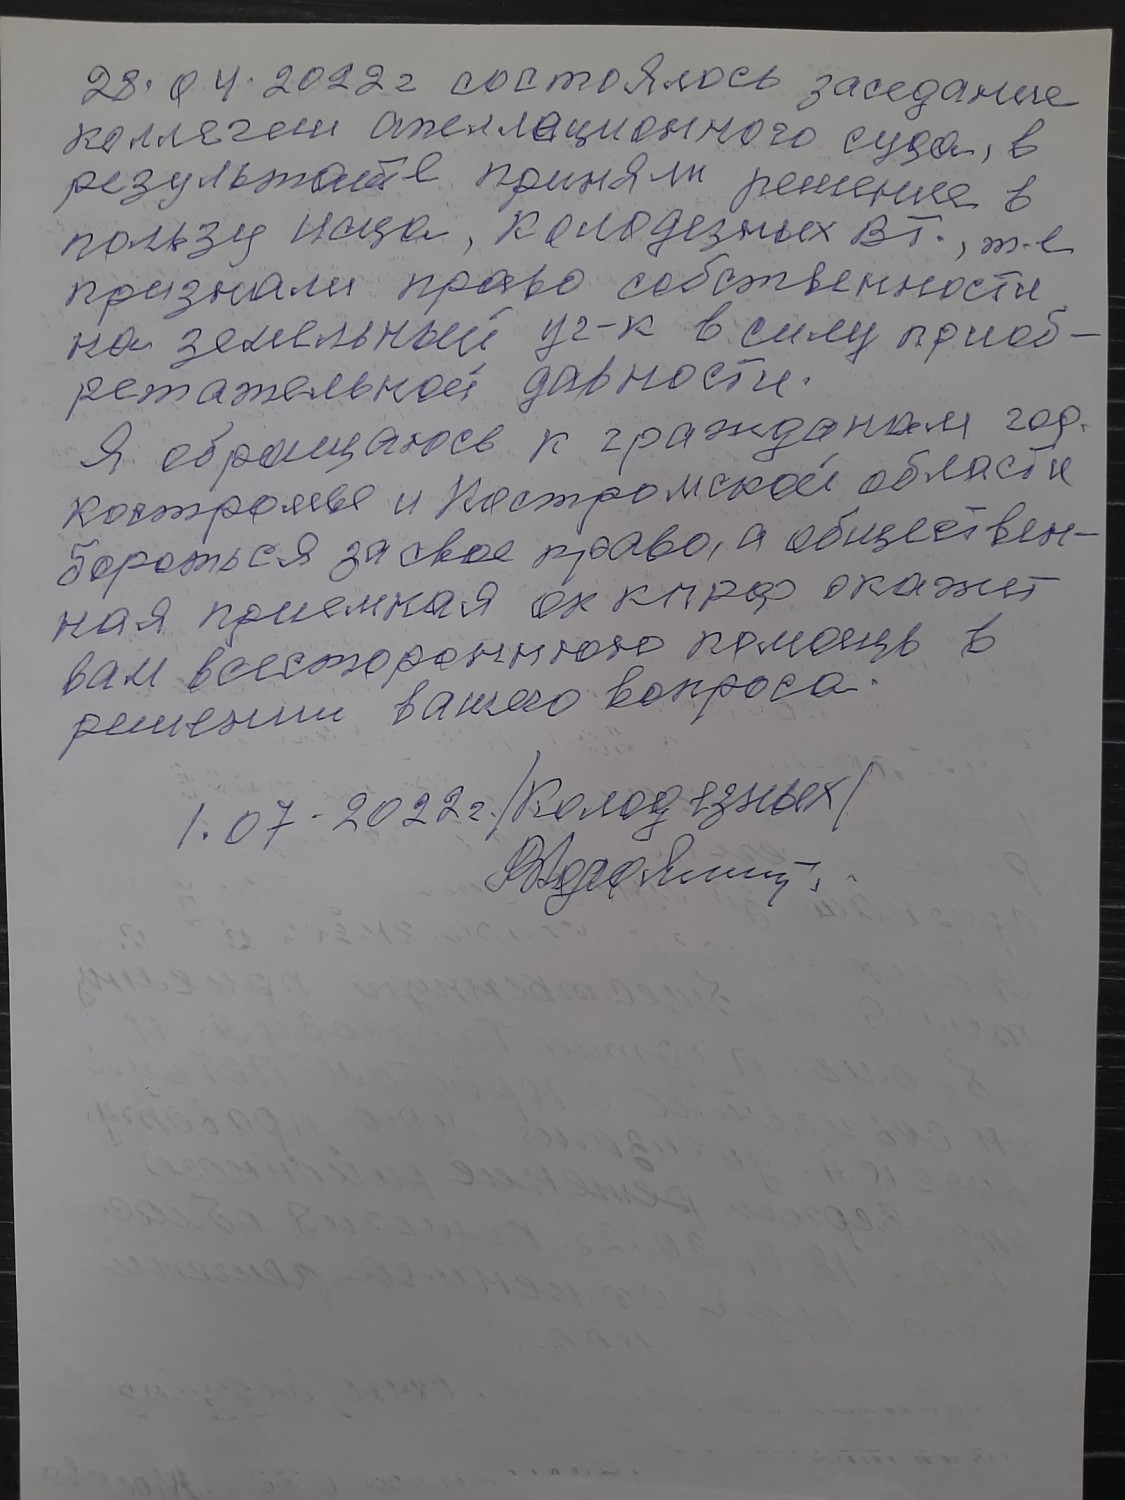 28.04.2022г состоялось заседание
коллегии апелляционного суда, в
результате приняли решение в
пользу истца, Колодезных ВГ., т.е
признали право собственности
на земельный уч-к в силу приоб-
ретательной давности.
Я обращаюсь к гражданам гор.
Костромы и Костромской области
бороться за свое право, а обществен-
ная приемная ок КПРФ окажет
вам всестороннюю помощь в
решении вашего вопроса.
1.07.2022г. /Колодезных/